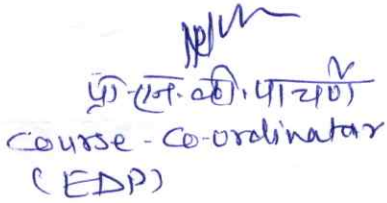 प्रा.एन.व्ही.पाचर्णे
Course-Co-ordinator
(EDP)